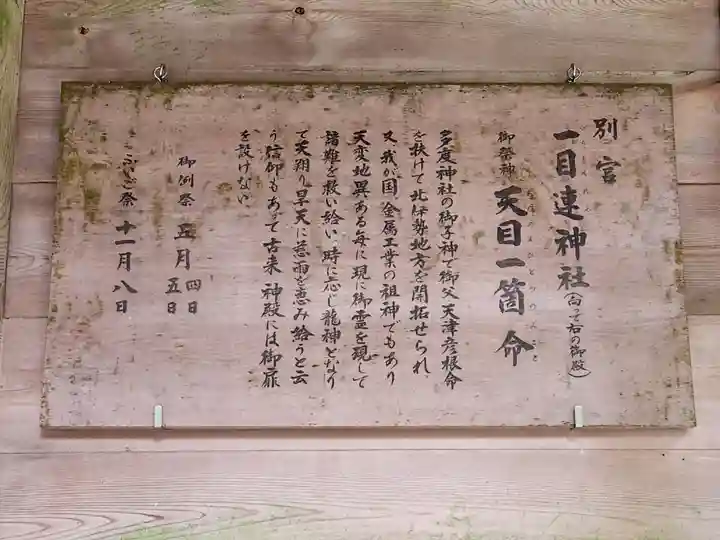 別宮
一目連神社(向って右の御殿)
御祭神 天目一箇命
多度神社の御子神で御父天津彦根命
を扶けて北伊勢地方を開拓せられ、
又、我が国、金属工業の祖神でもあり
天変地異ある毎に現に御霊を現して
諸難を救い給い、時に応じ龍神となり
て天翔り旱天に慈雨を恵み給うと云
う信仰もあって古来、神殿には御扉
を設けない。
御例祭 五月四日
五日
ふいご祭 十一月八日